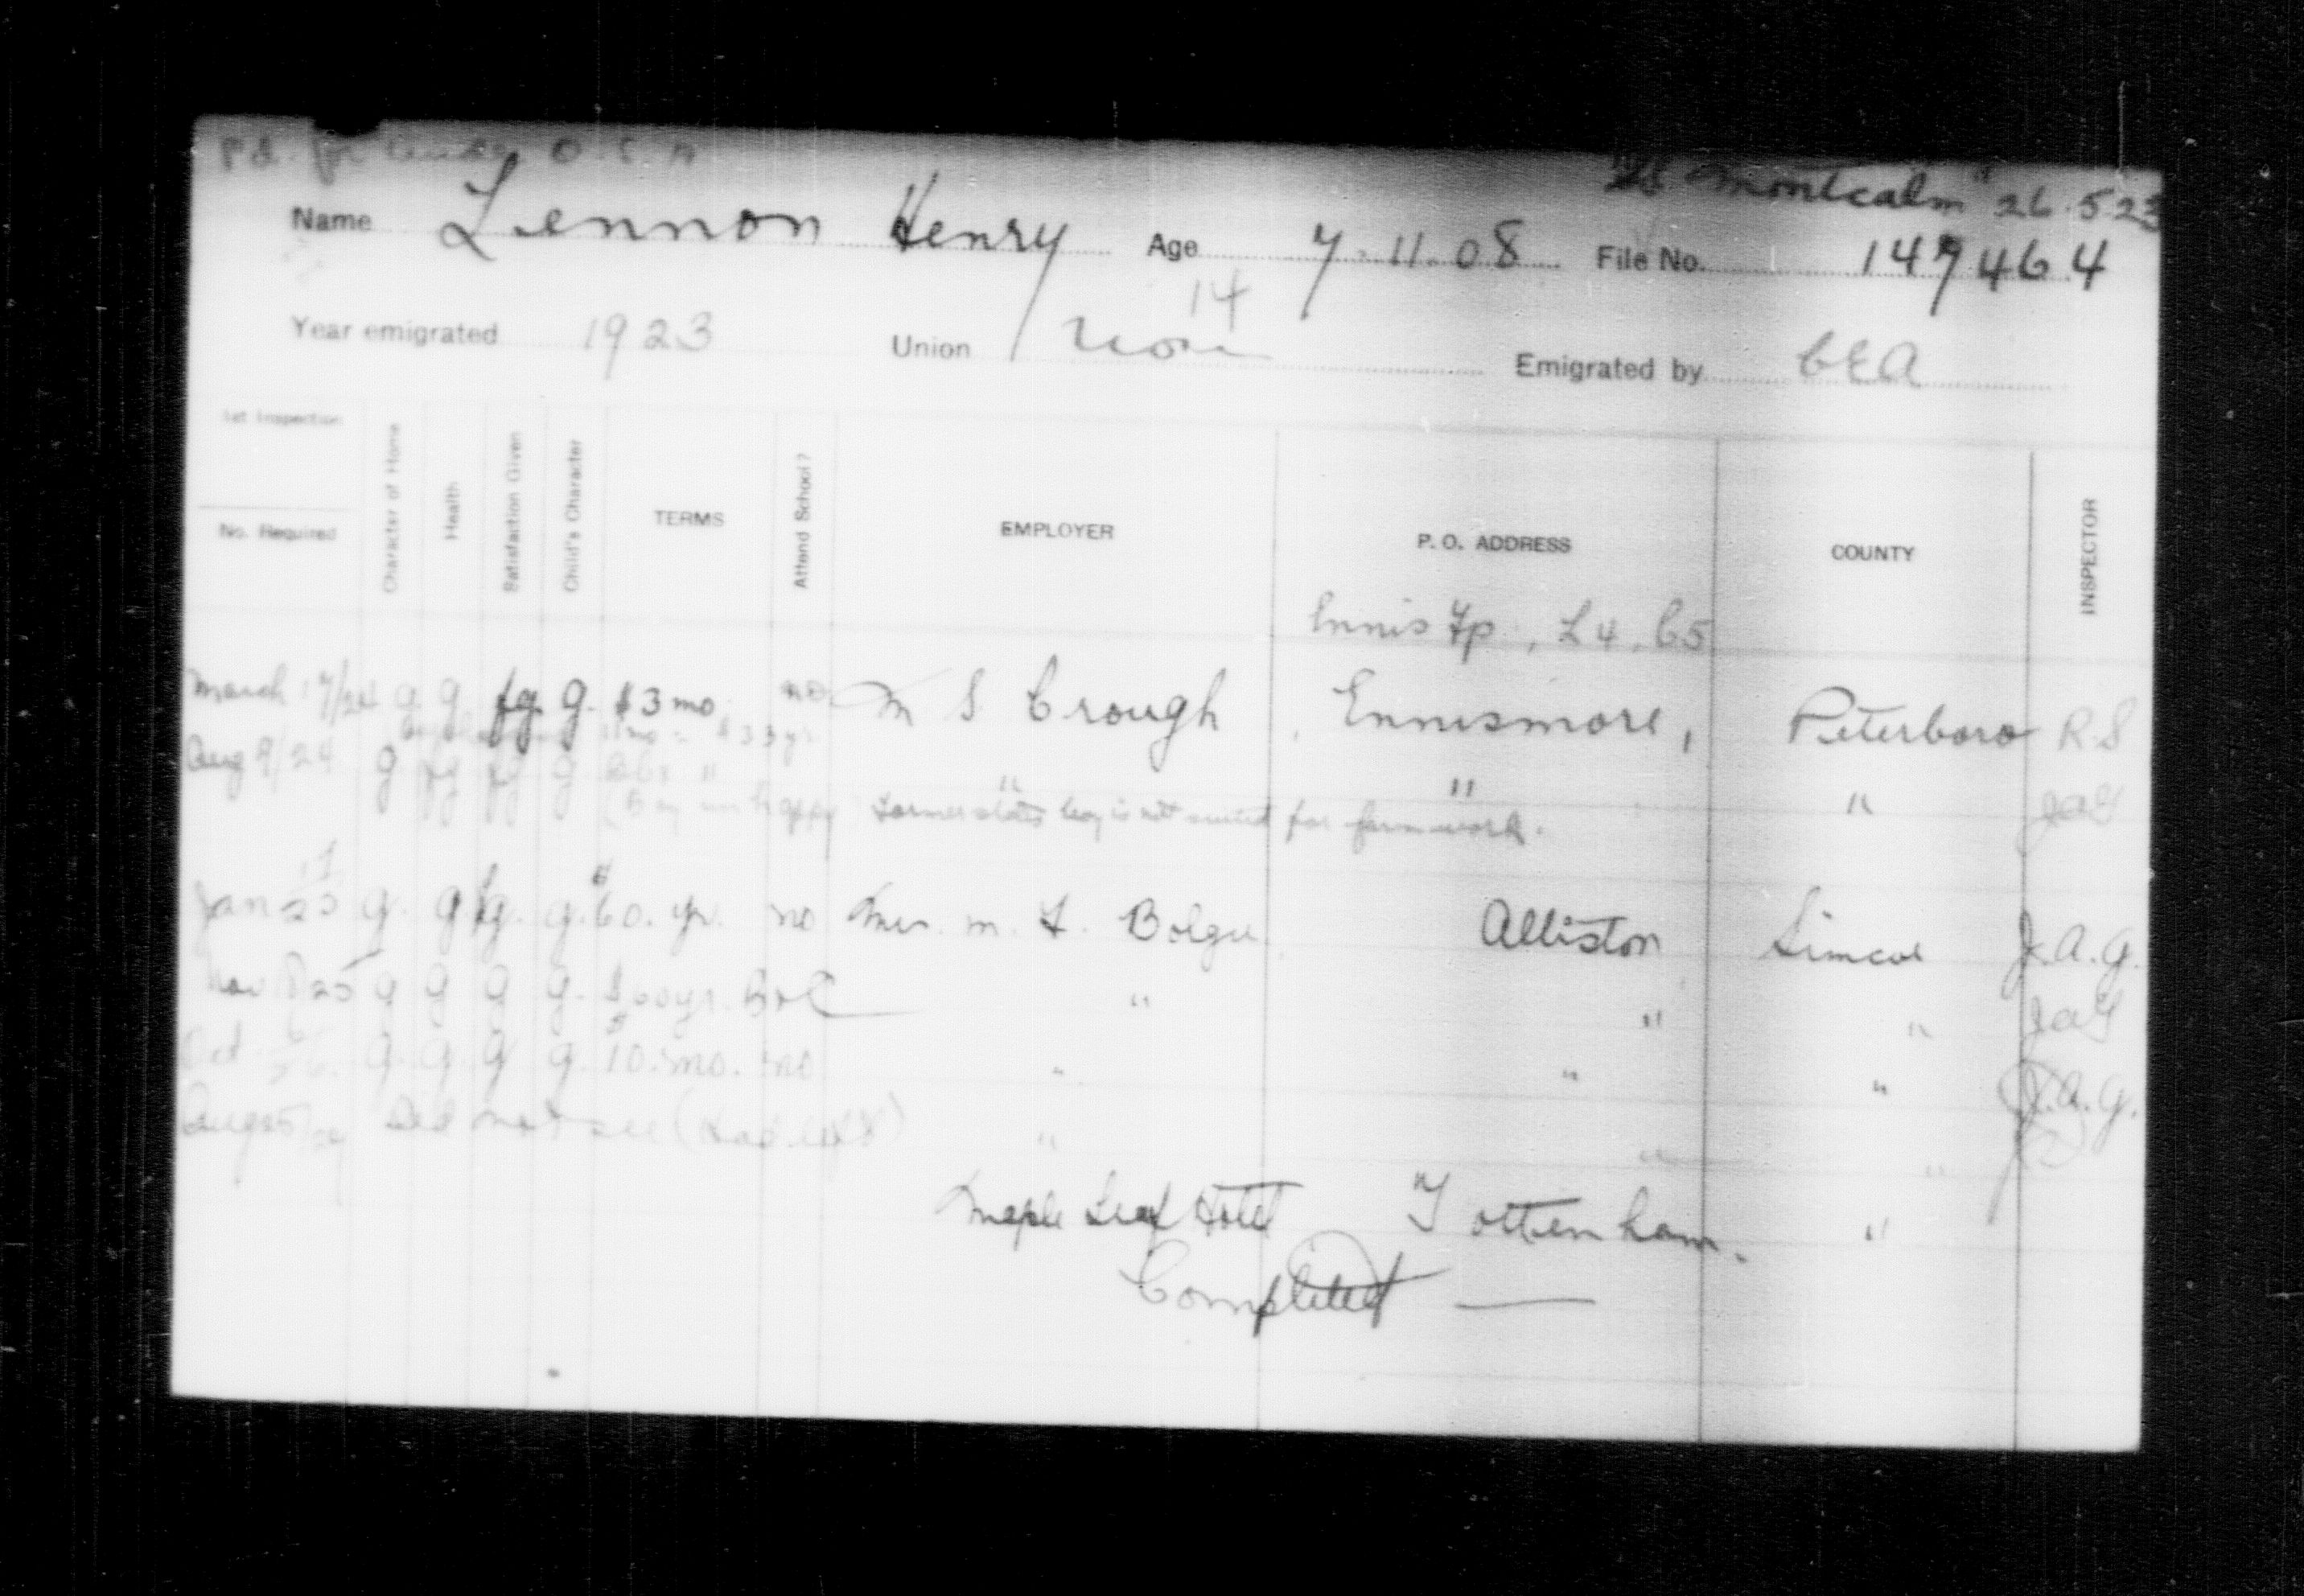 Pd. for O. C. A
SS. "Montcalm" 26.5.23
Name Lennon Henry Age 7.11.08 File No. 147464
14
Year emigrated 1923 Union Non Emigrated by CEA
1st Inspection
No. Required
Character of Home
Health
Satisfaction Given
Child's Character
TERMS
Attend School?
EMPLOYER
P. O. ADDRESS
COUNTY
INSPECTOR
Ennis Tp, L4, C5
March 17/24 g g fg. g. $3 mo. no M S Crough, Ennismore, Peterboro R S
$33 yr
Aug 9/24 g fg fg g " " " " JAG
(Boy unhappy Farmer states boy is not suited for farmwork.
Jan 25 g. g fg. g. $60. yr. no Mrs. M. F. Bolger Alliston Simcoe J.A.G.
Nov 25 g g g g. $60 yr. " " " JAG
Oct. 6 26. g. g. g g. $10. mo. no " " " J.A.G.
Aug 25/ Did not see (Had left) " " "
Maple Leaf Hotel Tottenham. "
Completed —